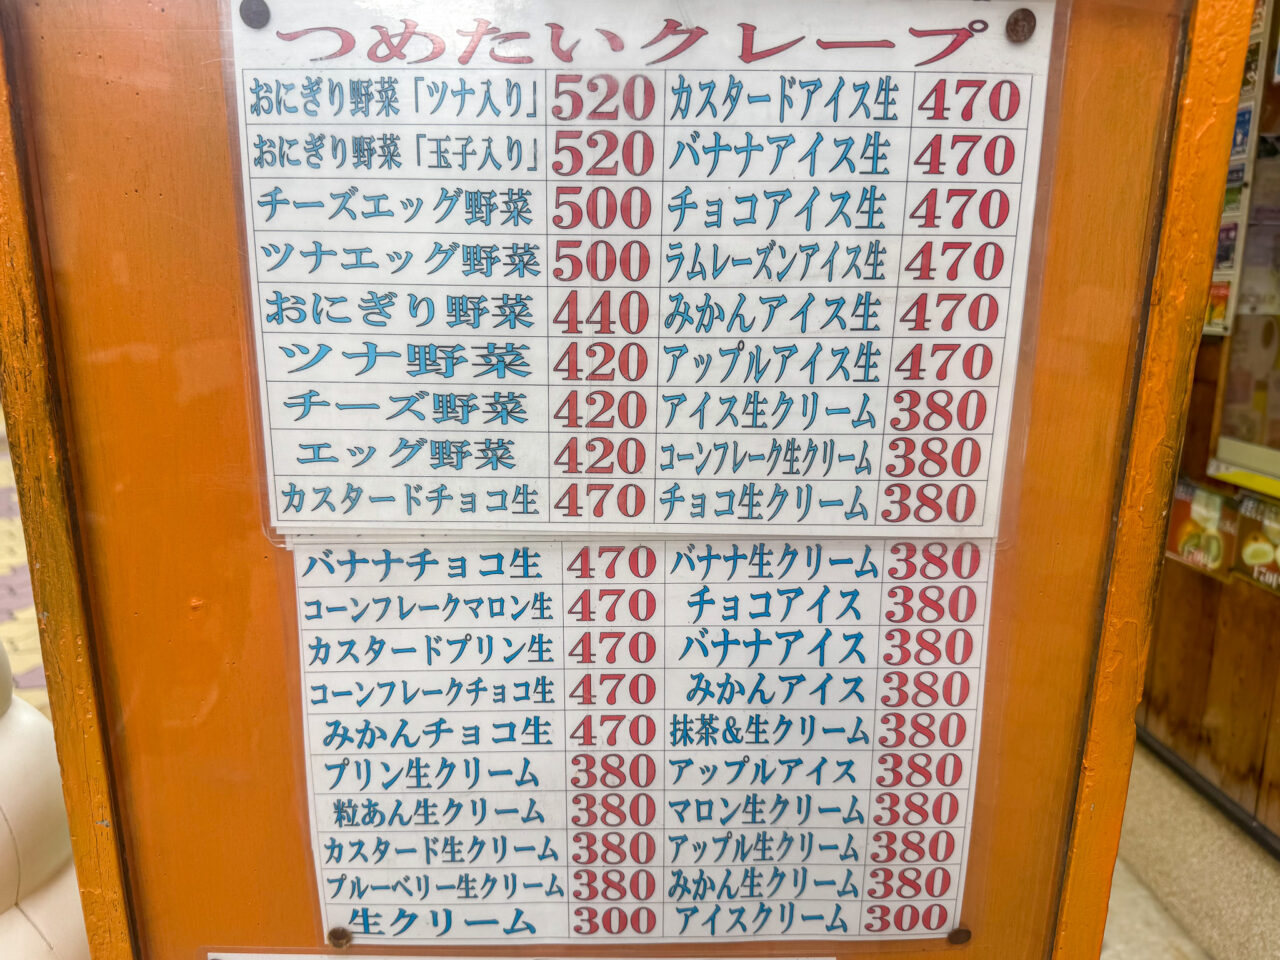 つめたいクレープ
おにぎり野菜「ツナ入り」 520 カスタードアイス生 470
おにぎり野菜「玉子入り」 520 バナナアイス生 470
チーズエッグ野菜 500 チョコアイス生 470
ツナエッグ野菜 500 ラムレーズンアイス生 470
おにぎり野菜 440 みかんアイス生 470
ツナ野菜 420 アップルアイス生 470
チーズ野菜 420 アイス生クリーム 380
エッグ野菜 420 コーンフレーク生クリーム 380
カスタードチョコ生 470 チョコ生クリーム 380
バナナチョコ生 470 バナナ生クリーム 380
コーンフレークマロン生 470 チョコアイス 380
カスタードプリン生 470 バナナアイス 380
コーンフレークチョコ生 470 みかんアイス 380
みかんチョコ生 470 抹茶&生クリーム 380
プリン生クリーム 380 アップルアイス 380
粒あん生クリーム 380 マロン生クリーム 380
カスタード生クリーム 380 アップル生クリーム 380
ブルーベリー生クリーム 380 みかん生クリーム 380
生クリーム 300 アイスクリーム 300